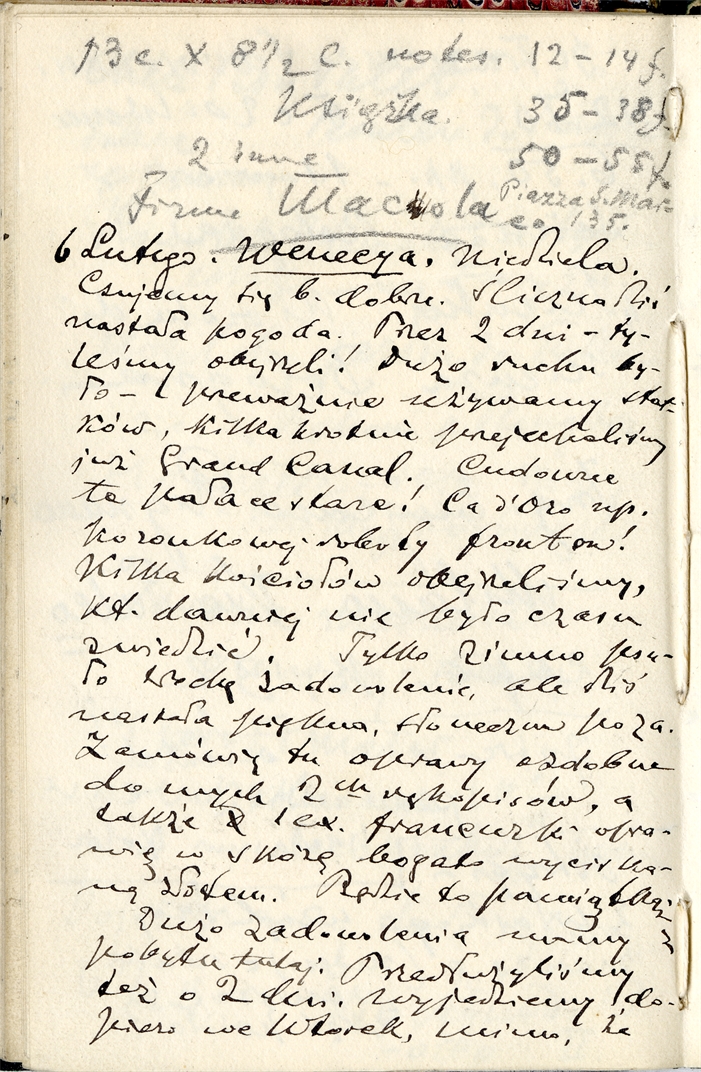 13 c. X 8 1/2 c. notes. 12 – 14 f.
Książka. 35 – 38 f.
2 inne 50 – 55 f.
Firme Piazza S. Mar-
co 135.
6 Lutego. Wenecya. Niedziela.
Czujemy się b. dobrze. Śliczna dziś
nastała pogoda. Przez 2 dni – ty-
leśmy obejrzeli! Dużo ruchu by-
ło – przeważnie używamy stat-
ków, kilkakrotnie przejechaliśmy
już Grand Canal. Cudowne
te pałace stare! Ca d'Oro np.
koronkowej roboty fronton!
Kilka kościołów obejrzeliśmy,
kt. dawniej nie było czasu
zwiedzić. Tylko zimno psu-
ło trochę zadowolenie, ale dziś
nastała piękna, słoneczna poga.
Zamówię tu oprawy ozdobne
do mych 2ch rękopisów, a
także 1 ex. francuzki opra-
wię w skórę bogato wyciska-
ną złotem. Będzie to pamiątką z
Dużo zadowolenia mamy z
pobytu tutaj. Przedłużyliśmy
też o 2 dni. wyjedziemy do-
piero we Wtorek, mimo, że